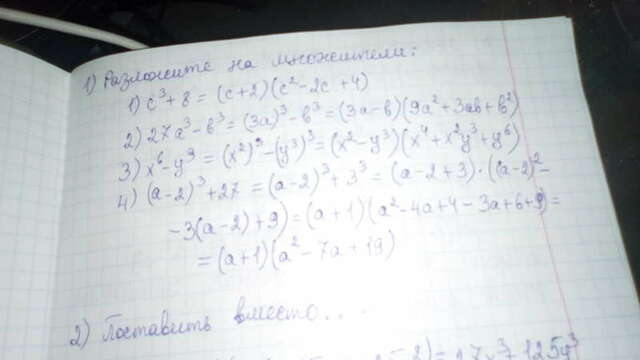 1) Разложите на множители:
1) c³+8 = (c+2)(c²-2c+4)
2) 27a³-b³=(3a)³-b³=(3a-b)(9a²+3ab+b²)
3) x⁶-y⁹ = (x²)³-(y³)³=(x²-y³)(x⁴+x²y³+y⁶)
4) (a-2)³+27 = (a-2)³+3³=(a-2+3)·((a-2)²-
-3(a-2)+9)=(a+1)(a²-4a+4-3a+6+9)=
=(a+1)(a²-7a+19)
2) Поставить вместо...